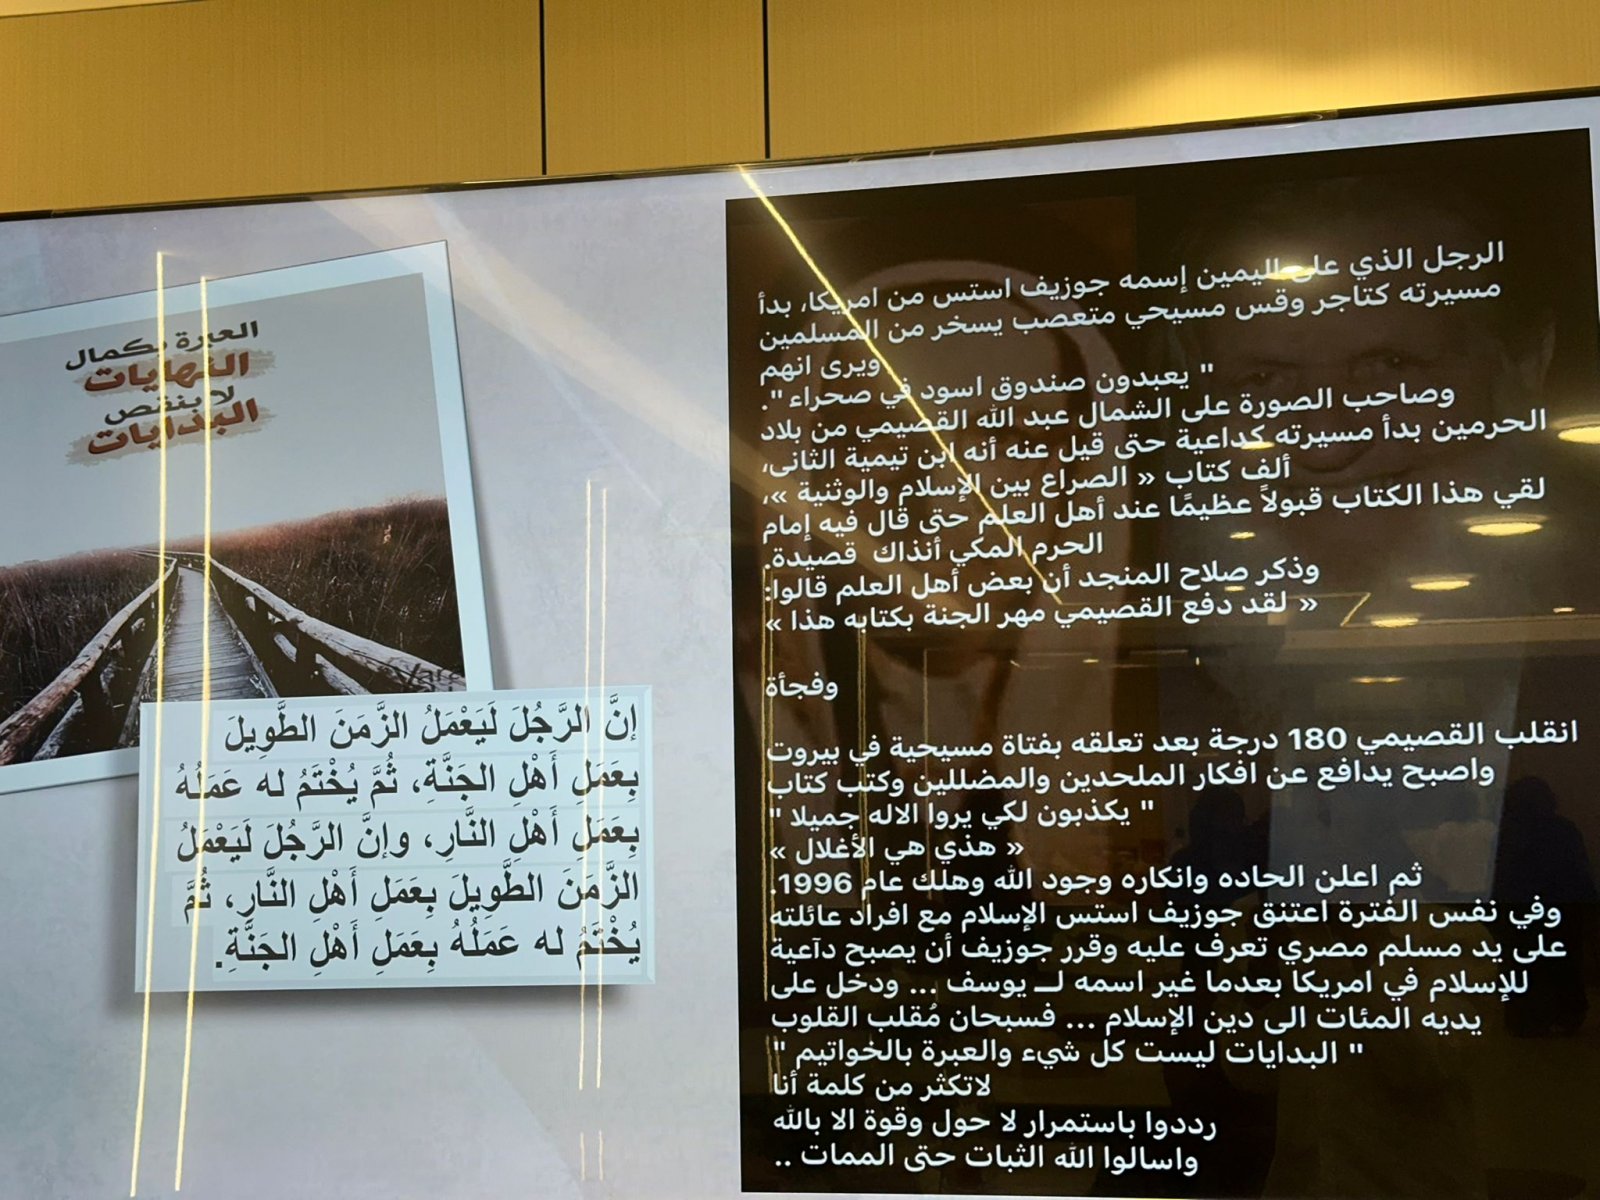 العبرة بكمال
النهايات
لا بنقص
البدايات
إنَّ الرَّجُلَ لَيَعْمَلُ الزَّمَنَ الطَّوِيلَ
بِعَمَلِ أَهْلِ الجَنَّةِ، ثُمَّ يُخْتَمُ له عَمَلُهُ
بِعَمَلِ أَهْلِ النَّارِ، وإنَّ الرَّجُلَ لَيَعْمَلُ
الزَّمَنَ الطَّوِيلَ بِعَمَلِ أَهْلِ النَّارِ، ثُمَّ
يُخْتَمُ له عَمَلُهُ بِعَمَلِ أَهْلِ الجَنَّةِ.
الرجل الذي على اليمين إسمه جوزيف استس من امريكا، بدأ
مسيرته كتاجر وقس مسيحي متعصب يسخر من المسلمين
ويرى انهم
" يعبدون صندوق اسود في صحراء ".
وصاحب الصورة على الشمال عبد الله القصيمي من بلاد
الحرمين بدأ مسيرته كداعية حتى قيل عنه أنه ابن تيمية الثانى،
ألف كتاب « الصراع بين الإسلام والوثنية »،
لقي هذا الكتاب قبولاً عظيمًا عند أهل العلم حتى قال فيه إمام
الحرم المكي أنذاك قصيدة.
وذكر صلاح المنجد أن بعض أهل العلم قالوا:
« لقد دفع القصيمي مهر الجنة بكتابه هذا »
وفجأة
انقلب القصيمي 180 درجة بعد تعلقه بفتاة مسيحية في بيروت
واصبح يدافع عن افكار الملحدين والمضللين وكتب كتاب
" يكذبون لكي يروا الاله جميلا "
« هذي هي الأغلال »
ثم اعلن الحاده وانكاره وجود الله وهلك عام 1996.
وفي نفس الفترة اعتنق جوزيف استس الإسلام مع افراد عائلته
على يد مسلم مصري تعرف عليه وقرر جوزيف أن يصبح دآعية
للإسلام في امريكا بعدما غير اسمه لــ يوسف ... ودخل على
يديه المئات الى دين الإسلام ... فسبحان مُقلب القلوب
" البدايات ليست كل شيء والعبرة بالخواتيم "
لاتكثر من كلمة أنا
رددوا باستمرار لا حول وقوة الا بالله
واسالوا الله الثبات حتى الممات ..